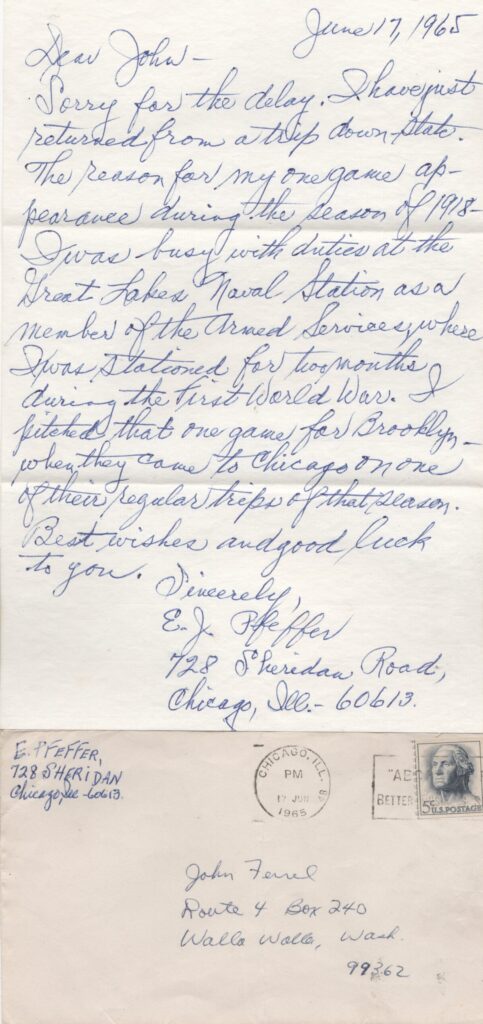 June 17, 1965
Dear John -
Sorry for the delay. I have just
returned from a trip down-state.
The reason for my one game ap-
pearance during the season of 1918-
I was busy with duties at the
Great Lakes Naval Station as a
member of the Armed Services, where
I was stationed for two months
during the First World War. I
pitched that one game for Brooklyn-
when they came to Chicago on one
of their regular trips of that season.
Best wishes and good luck
to you.
Sincerely,
E. J. Pfeffer
728 Sheridan Road,
Chicago, Ill.- 60613.
E. PFEFFER,
728 SHERIDAN
Chicago, Ill -60613.
CHICAGO, ILL.
PM
17 JUN
1965
BETTER
5c U.S. POSTAGE
John Ferrel
Route 4 Box 240
Walla Walla, Wash.
99362